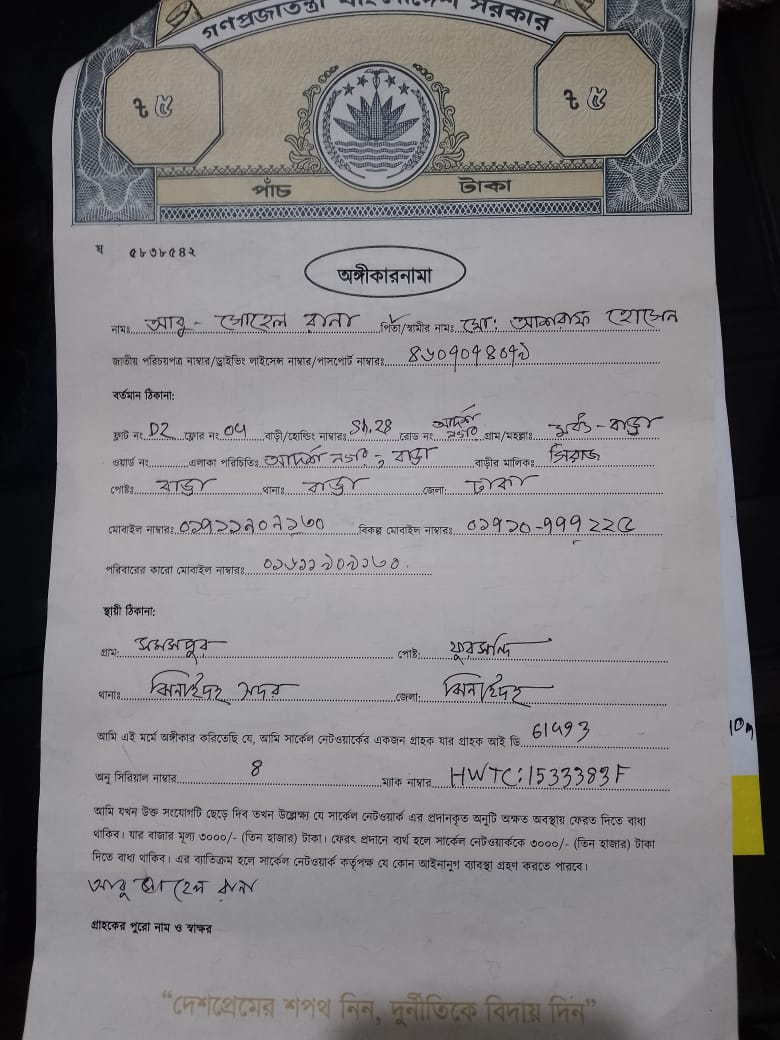 গণপ্রজাতন্ত্রী বাংলাদেশ সরকার
৳ ৫ ৳ ৫
পাঁচ টাকা
ষ ৫৮৩৮৫৪২
অঙ্গীকারনামা
নামঃ আবু - সোহেল রানা পিতা/স্বামীর নামঃ মো: আশরাফ হোসেন
জাতীয় পরিচয়পত্র নাম্বার/ড্রাইভিং লাইসেন্স নাম্বার/পাসপোর্ট নাম্বারঃ
বর্তমান ঠিকানা:
ফ্লাট নং D2 ফ্লোর নং 04 বাড়ী/হোল্ডিং নাম্বারঃ Sh.28 রোড নং আদর্শ নগর গ্রাম/মহল্লাঃ বাড্ডা
ওয়ার্ড নং এলাকা পরিচিতিঃ আদর্শ নগর, বাড্ডা বাড়ীর মালিকঃ সিরাজ
পোষ্টঃ বাড্ডা থানাঃ বাড্ডা জেলা: ঢাকা
মোবাইল নাম্বারঃ বিকল্প মোবাইল নাম্বারঃ
পরিবারের কারো মোবাইল নাম্বারঃ
স্থায়ী ঠিকানা:
গ্রাম: পোষ্ট: ফুরসন্দি
থানাঃ ঝিনাইদহ সদর জেলা: ঝিনাইদহ
আমি এই মর্মে অঙ্গীকার করিতেছি যে, আমি সার্কেল নেটওয়ার্কের একজন গ্রাহক যার গ্রাহক আই ডি 61493
অনু সিরিয়াল নাম্বার 8 ম্যাক নাম্বার HWTC:1533383F
আমি যখন উক্ত সংযোগটি ছেড়ে দিব তখন উল্লেক্ষ্য যে সার্কেল নেটওয়ার্ক এর প্রদানকৃত অনুটি অক্ষত অবস্থায় ফেরত দিতে বাধ্য
থাকিব। যার বাজার মূল্য ৩০০০/- (তিন হাজার) টাকা। ফেরৎ প্রদানে ব্যর্থ হলে সার্কেল নেটওয়ার্ককে ৩০০০/- (তিন হাজার) টাকা
দিতে বাধ্য থাকিব। এর ব্যতিক্রম হলে সার্কেল নেটওয়ার্ক কর্তৃপক্ষ যে কোন আইনানুগ ব্যবস্থা গ্রহণ করতে পারবে।
আবু সোহেল রানা
গ্রাহকের পুরো নাম ও স্বাক্ষর
“দেশপ্রেমের শপথ নিন, দুর্নীতিকে বিদায় দিন”